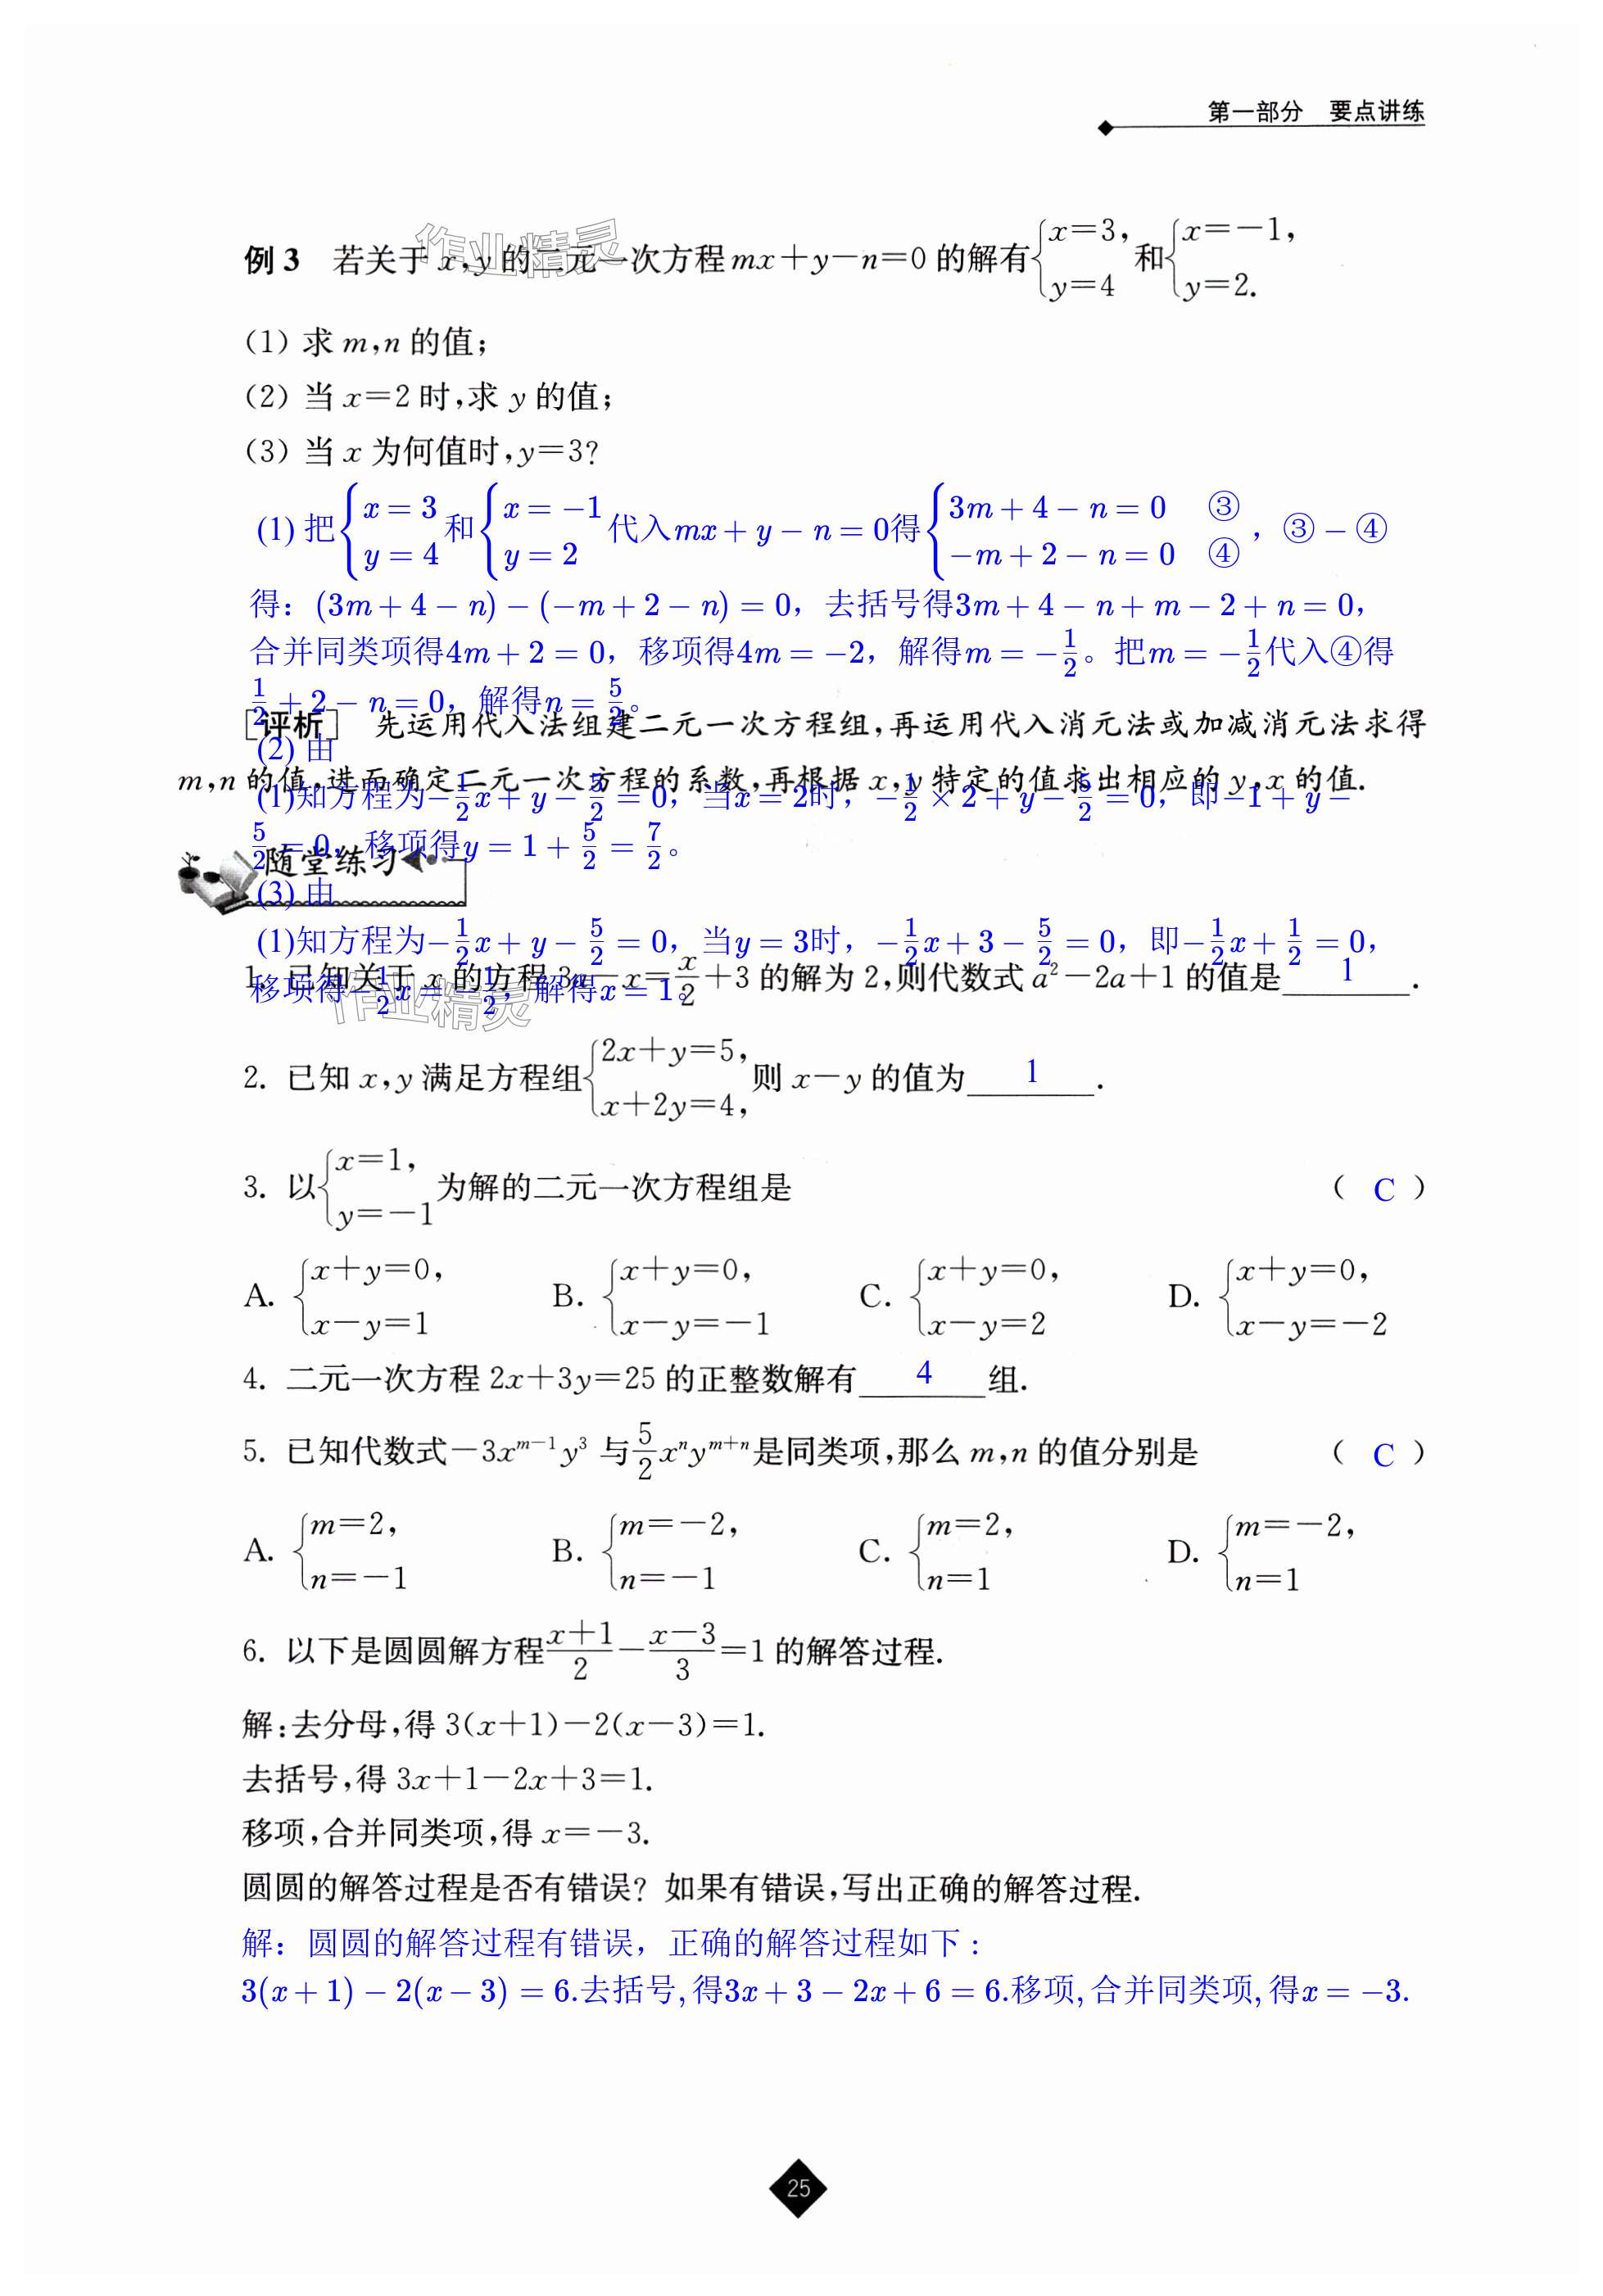 第一部分 要点讲练
例3 若关于x,y的二元一次方程mx+y-n=0的解有{x=3, y=4 和{x=-1, y=2.
作业精灵
(1) 求m,n的值;
(2) 当x=2时,求y的值;
(3) 当x为何值时,y=3?
(1) 把{x=3 y=4 和{x=-1 y=2 代入mx+y-n=0得{3m+4-n=0 ③ -m+2-n=0 ④ ，③-④
得：(3m+4-n)-(-m+2-n)=0，去括号得3m+4-n+m-2+n=0，
合并同类项得4m+2=0，移项得4m=-2，解得m=-1/2。把m=-1/2代入④得
1/2+2-n=0，解得n=5/2。
[评析] 先运用代入法组建二元一次方程组,再运用代入消元法或加减消元法求得
(2) 由
m,n的值,进而确定二元一次方程的系数,再根据x,y特定的值求出相应的y,x的值.
(1)知方程为-1/2x+y-5/2=0，当x=2时，-1/2×2+y-5/2=0，即-1+y-
5/2=0，移项得y=1+5/2=7/2。
随堂练习
(3) 由
(1)知方程为-1/2x+y-5/2=0，当y=3时，-1/2x+3-5/2=0，即-1/2x+1/2=0，
1. 已知关于x的方程3a-x=x/2+3的解为2,则代数式a²-2a+1的值是 1 .
移项得-1/2x=-1/2，解得x=1。
作业精灵
2. 已知x,y满足方程组{2x+y=5, x+2y=4, 则x-y的值为 1 .
3. 以{x=1, y=-1 为解的二元一次方程组是 ( C )
A. {x+y=0, x-y=1 B. {x+y=0, x-y=-1 C. {x+y=0, x-y=2 D. {x+y=0, x-y=-2
4. 二元一次方程2x+3y=25的正整数解有 4 组.
5. 已知代数式-3x^{m-1}y³与5/2x^n y^{m+n}是同类项,那么m,n的值分别是 ( C )
A. {m=2, n=-1 B. {m=-2, n=-1 C. {m=2, n=1 D. {m=-2, n=1
6. 以下是圆圆解方程(x+1)/2-(x-3)/3=1的解答过程.
解:去分母,得3(x+1)-2(x-3)=1.
去括号,得3x+1-2x+3=1.
移项,合并同类项,得x=-3.
圆圆的解答过程是否有错误? 如果有错误,写出正确的解答过程.
解：圆圆的解答过程有错误，正确的解答过程如下:
3(x+1)-2(x-3)=6.去括号,得3x+3-2x+6=6.移项,合并同类项,得x=-3.
25